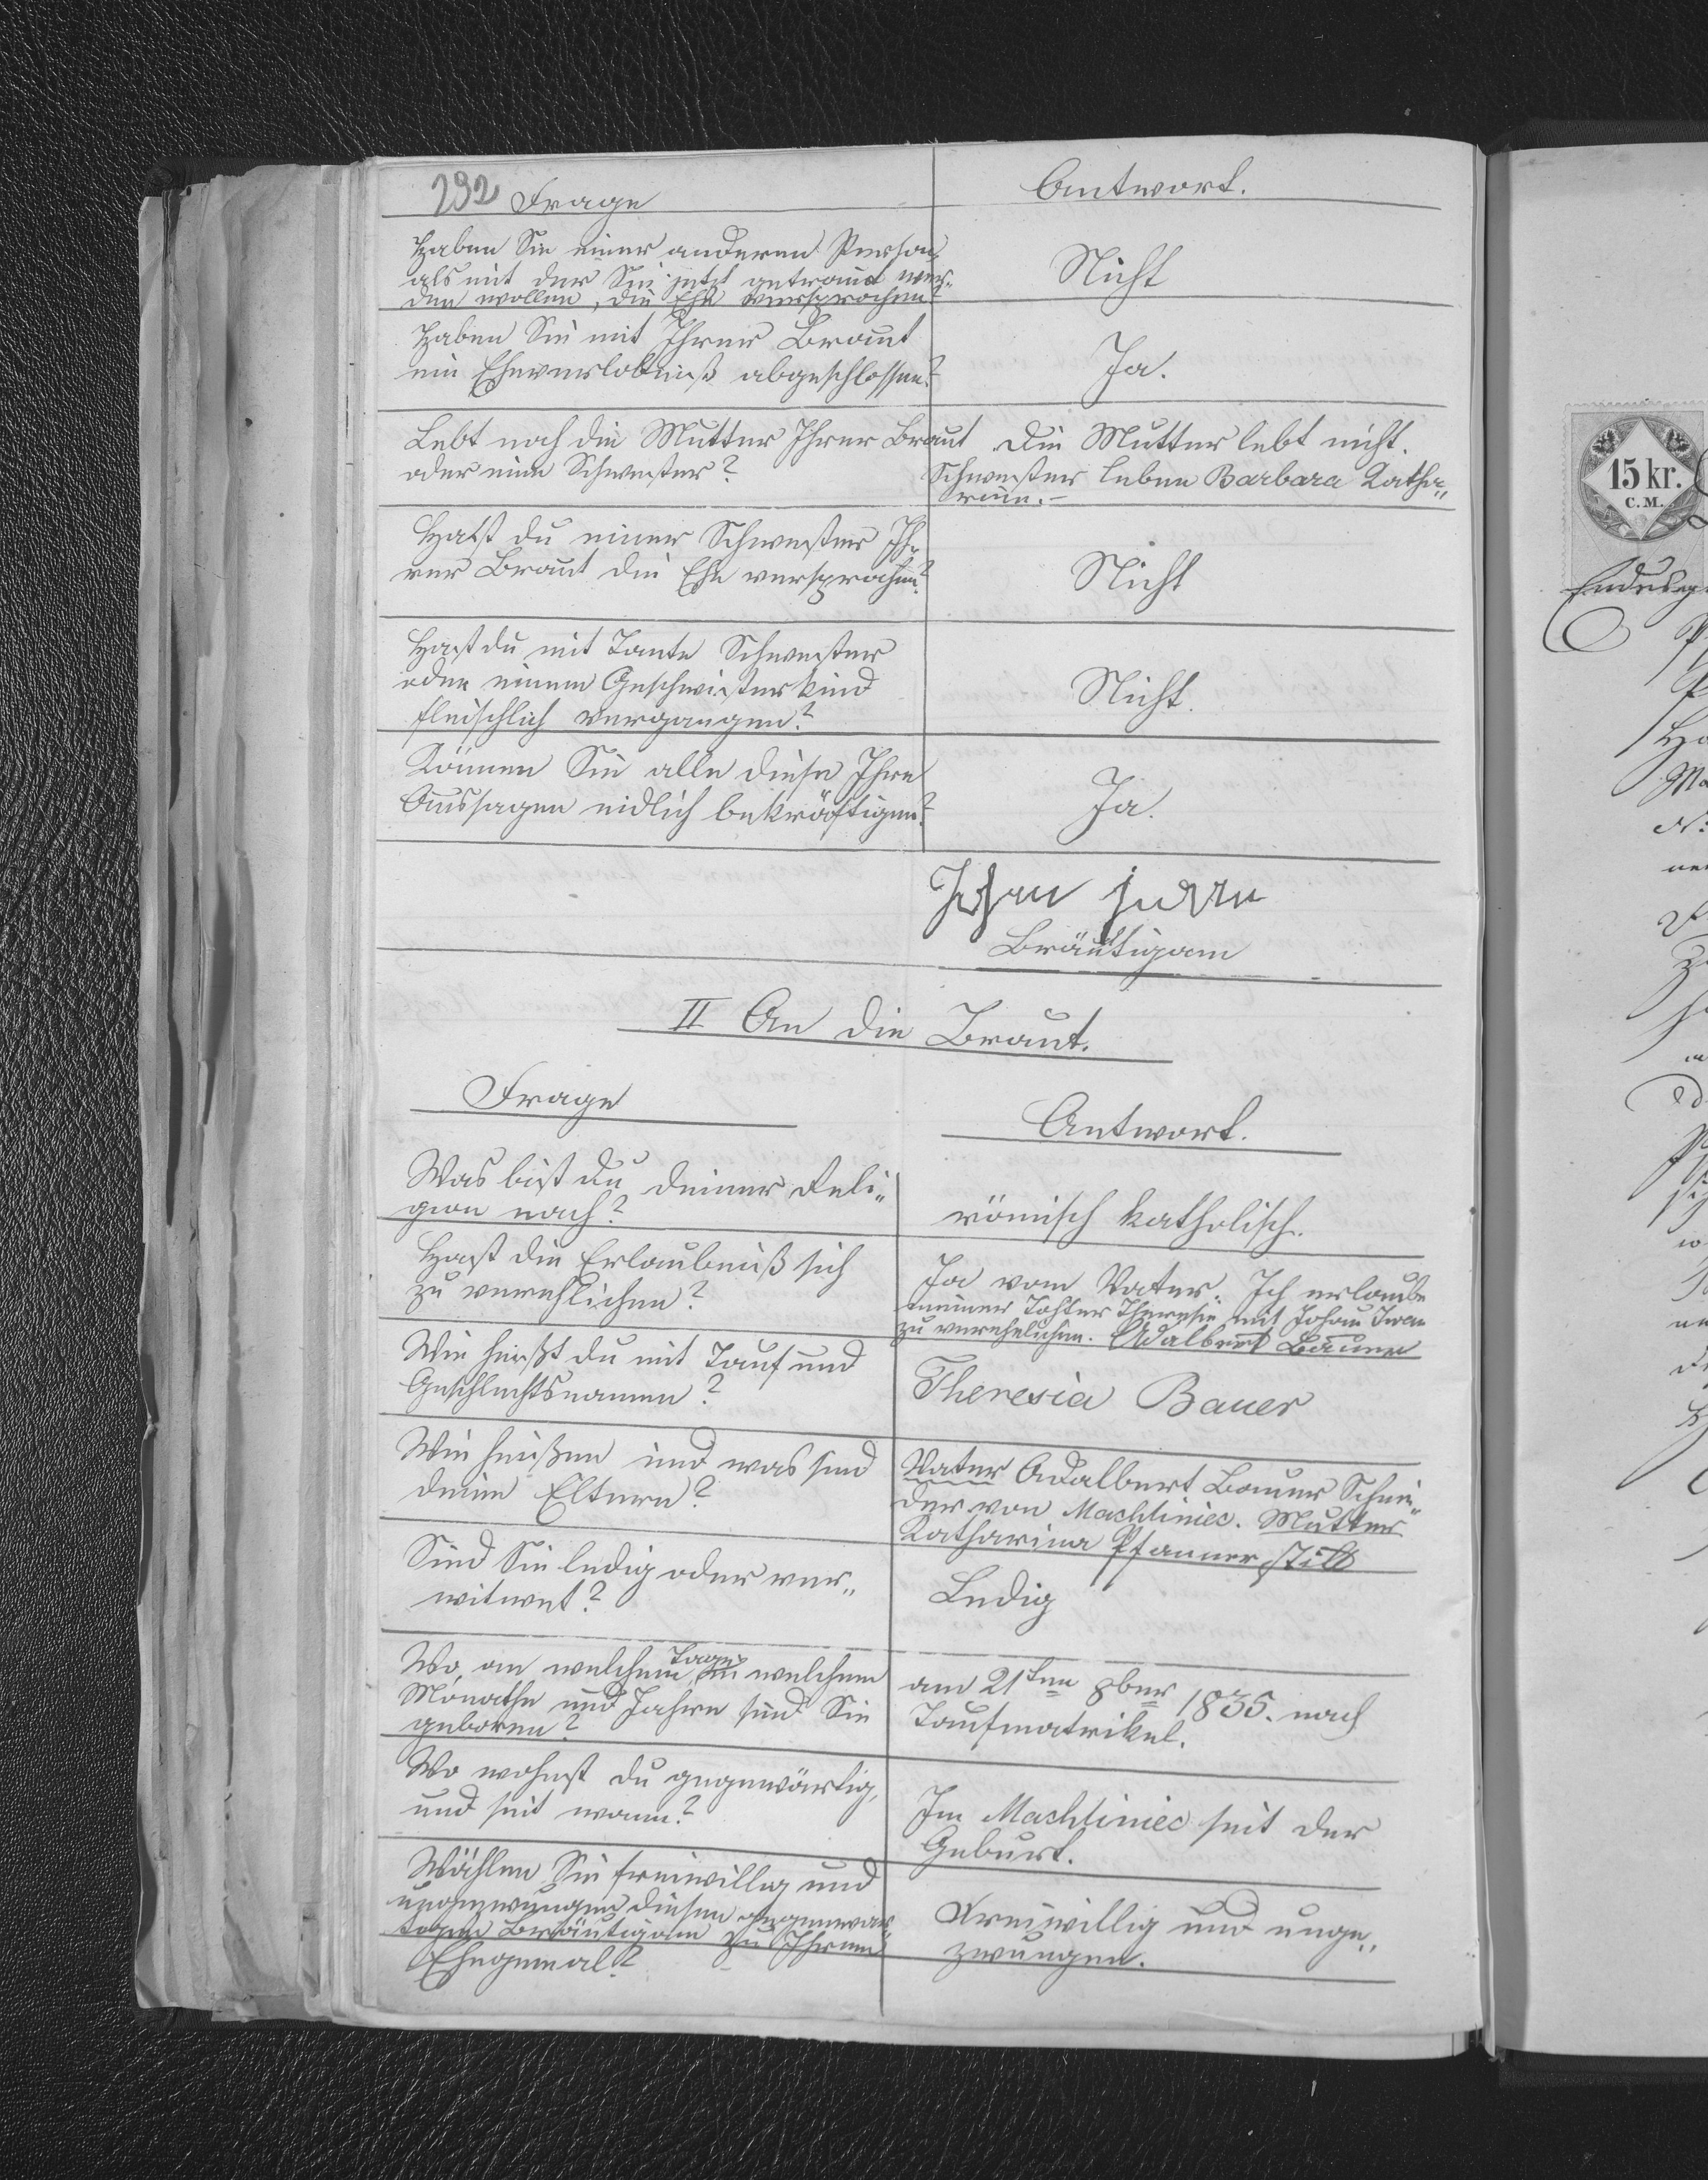 292 Frage
Antwort.
Haben Sie einer anderen Person,
als mit der Sie jetzt getraut wer„
den wollen, die Ehe versprochen?
Nicht
Haben Sie mit Ihrer Braut
ein Eheverlobniß abgeschlossen?
Ja.
Lebt noch die Mutter Ihrer Braut
oder eine Schwester?
Die Mutter lebt nicht.
Schwester leben Barbara Katha„
rina.–
Hast du einer Schwester Ih„
rer Braut die Ehe versprochen?
Nicht
Hast du mit Tante Schwester
oder einem Geschwisterkind
fleischlich vergangen?
Nicht.
Können Sie alle diese Ihre
Aussagen eidlich bekräftigen?
Ja.
Johan
Bräutigam
II An die Braut.
Frage
Antwort.
Was bist du deiner Reli„
gion nach?
römisch katholisch.
Hast die Erlaubniß sich
zu verehlichen?
Ja vom Vater. Ich erlaube
meiner Tohter Theresie mit Johan
zu verehelichen. Adalbert Bauer
Wie heißt du mit Tauf und
Geschlechtsnamen?
Theresia Bauer
Wie heißen und was sind
deine Eltern?
Vater Adalbert Bauer Schnei„
der von Machliniec. Mutter
Katharina Pfannerstill
Sind Sie ledig oder ver„
witwet?
Ledig
Wo, an welchem Tage, in welchem
Monathe und Jahre sind Sie
geboren?
am 21ten 8ber 1835. nach
Taufmatrikel.
Wo wohnst du gegenwärtig,
und seit wann?
In Machliniec seit der
Geburt.
Wählen Sie freiwillig und
ungezwungen diesen gegenwär„
tigen Bräutigam zu Ihrem
Ehegemal?
Freiwillig und unge„
zwungen.
15 kr.
C.M.